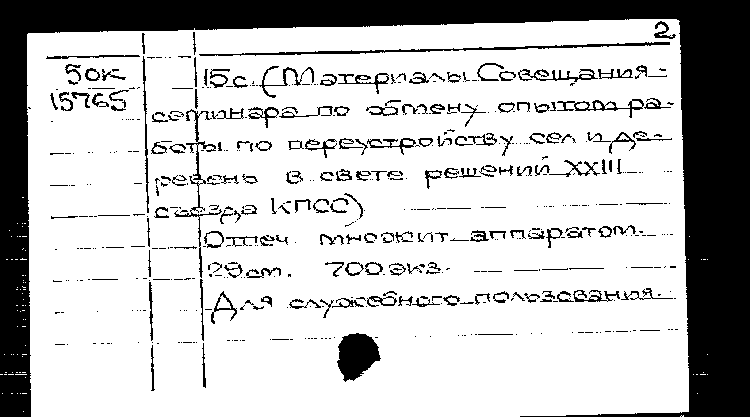 2
50к 15с. (Материалы Совещания-
15765 семинара по обмену опытом ра-
боты по переустройству сел и де-
ревень в свете решений XXIII
съезда КПСС)
Отпеч. множит. аппаратом.
29см. 700 экз.
Для служебного пользования.